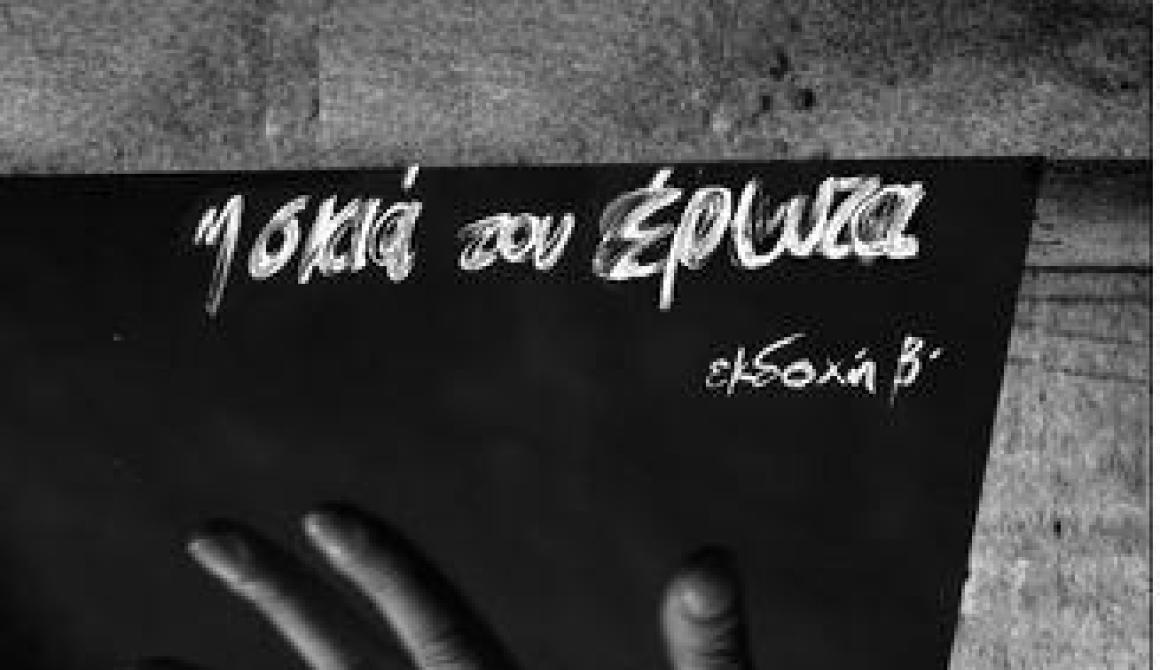 η σκιά του έρωτα
εκδοχή β'